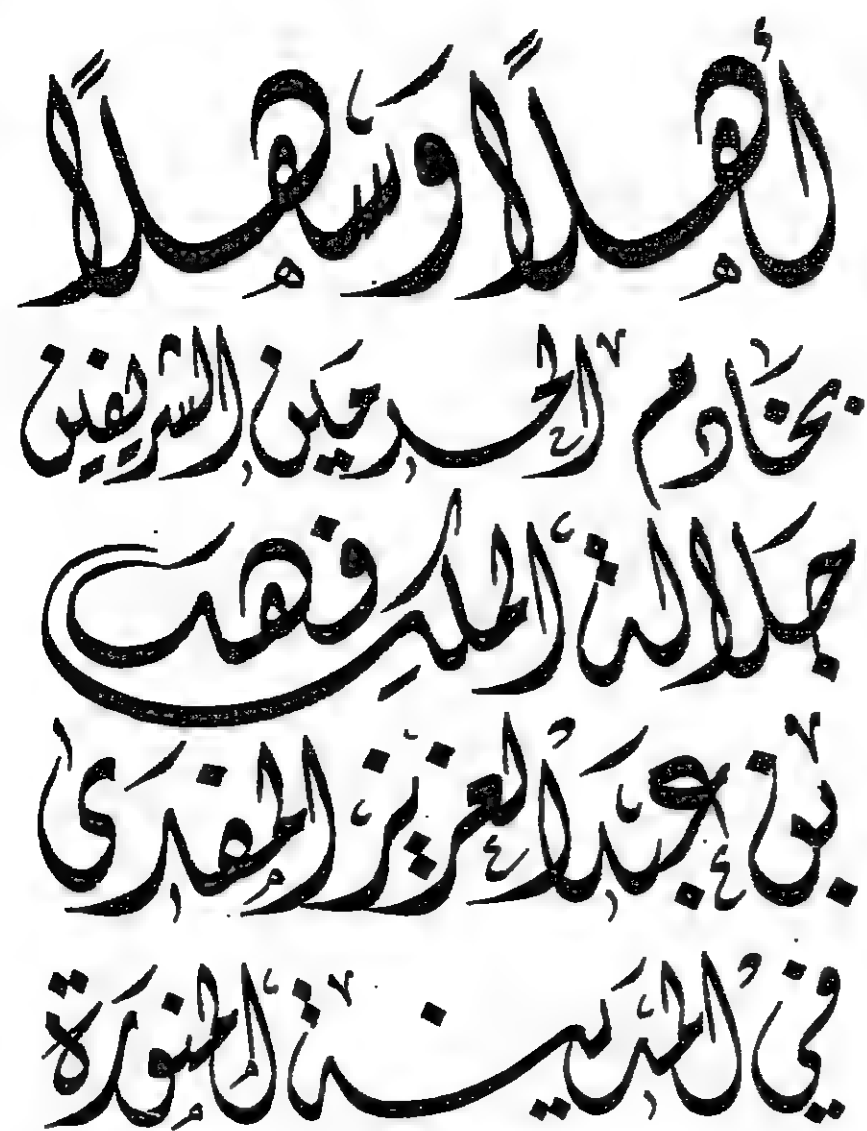 أهلاً وسهلاً
بخادم الحرمين الشريفين
جلالة الملك فهد
بن عبد العزيز المفدى
في المدينة المنورة